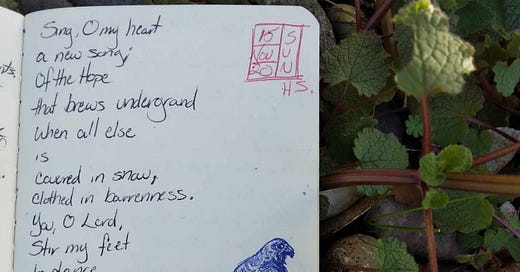 Sing, O my heart
a new song;
Of the Hope
that brews undergrand
when all else
is
covered in snow,
clothed in barrenness.
You, O Lord,
Stir my feet
to dance
15 S
Nov U
20 N
HS.
nts.